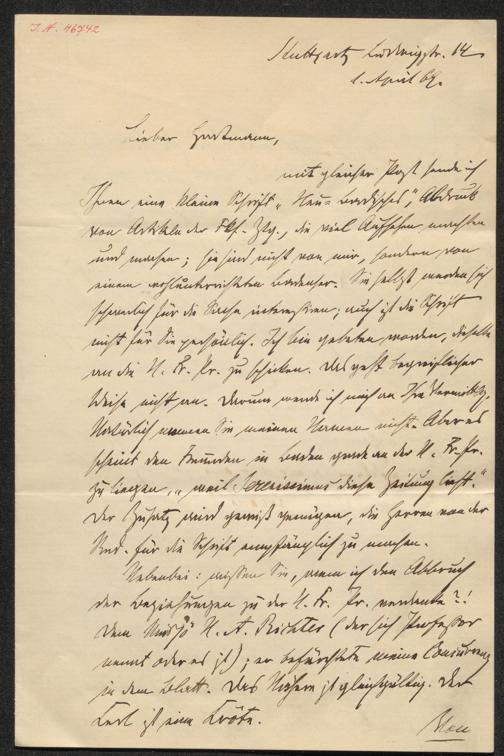 J. N. 46742
Stuttgart, Ludwigstr. 14
1. April 64.
Lieber Hartmann,
mit gleicher Post sende ich
Ihnen eine kleine Schrift „Neu-Badisches", Abdruck
von Artikeln der Fkf. Ztg., die viel Aufsehen machten
und machen; sie sind nicht von mir, sondern von
einem wohlunterrichteten Badenser. Sie selbst werden sich
schwerlich für die Sache interessiren, auch ist die Schrift
nicht für Sie persönlich. Ich bin gebeten worden, dieselbe
an die N. Fr. Pr. zu schicken. Das geht begreiflicher
Weise nicht an. Darum wende ich mich an Ihre Vermittlg.
Natürlich nennen Sie meinen Namen nicht. Aber es
scheint den Freunden in Baden gerade an der N. Fr. Pr.
zu liegen, „weil Serenissimus diese Zeitung liest."
Der Zusatz wird gewiß genügen, die Herren von der
Red. für die Schrift empfänglich zu machen.
Nebenbei: wissen Sie, wem ich den Abbruch
der Beziehungen zu der N. Fr. Pr. verdanke?!
Dem H. A. Richter (der sich Professor
nennt oder es ist); er befürchtete meine Concurrenz
in dem Blatt. Das Nähere ist gleichgültig. Der
Kerl ist eine Kröte.